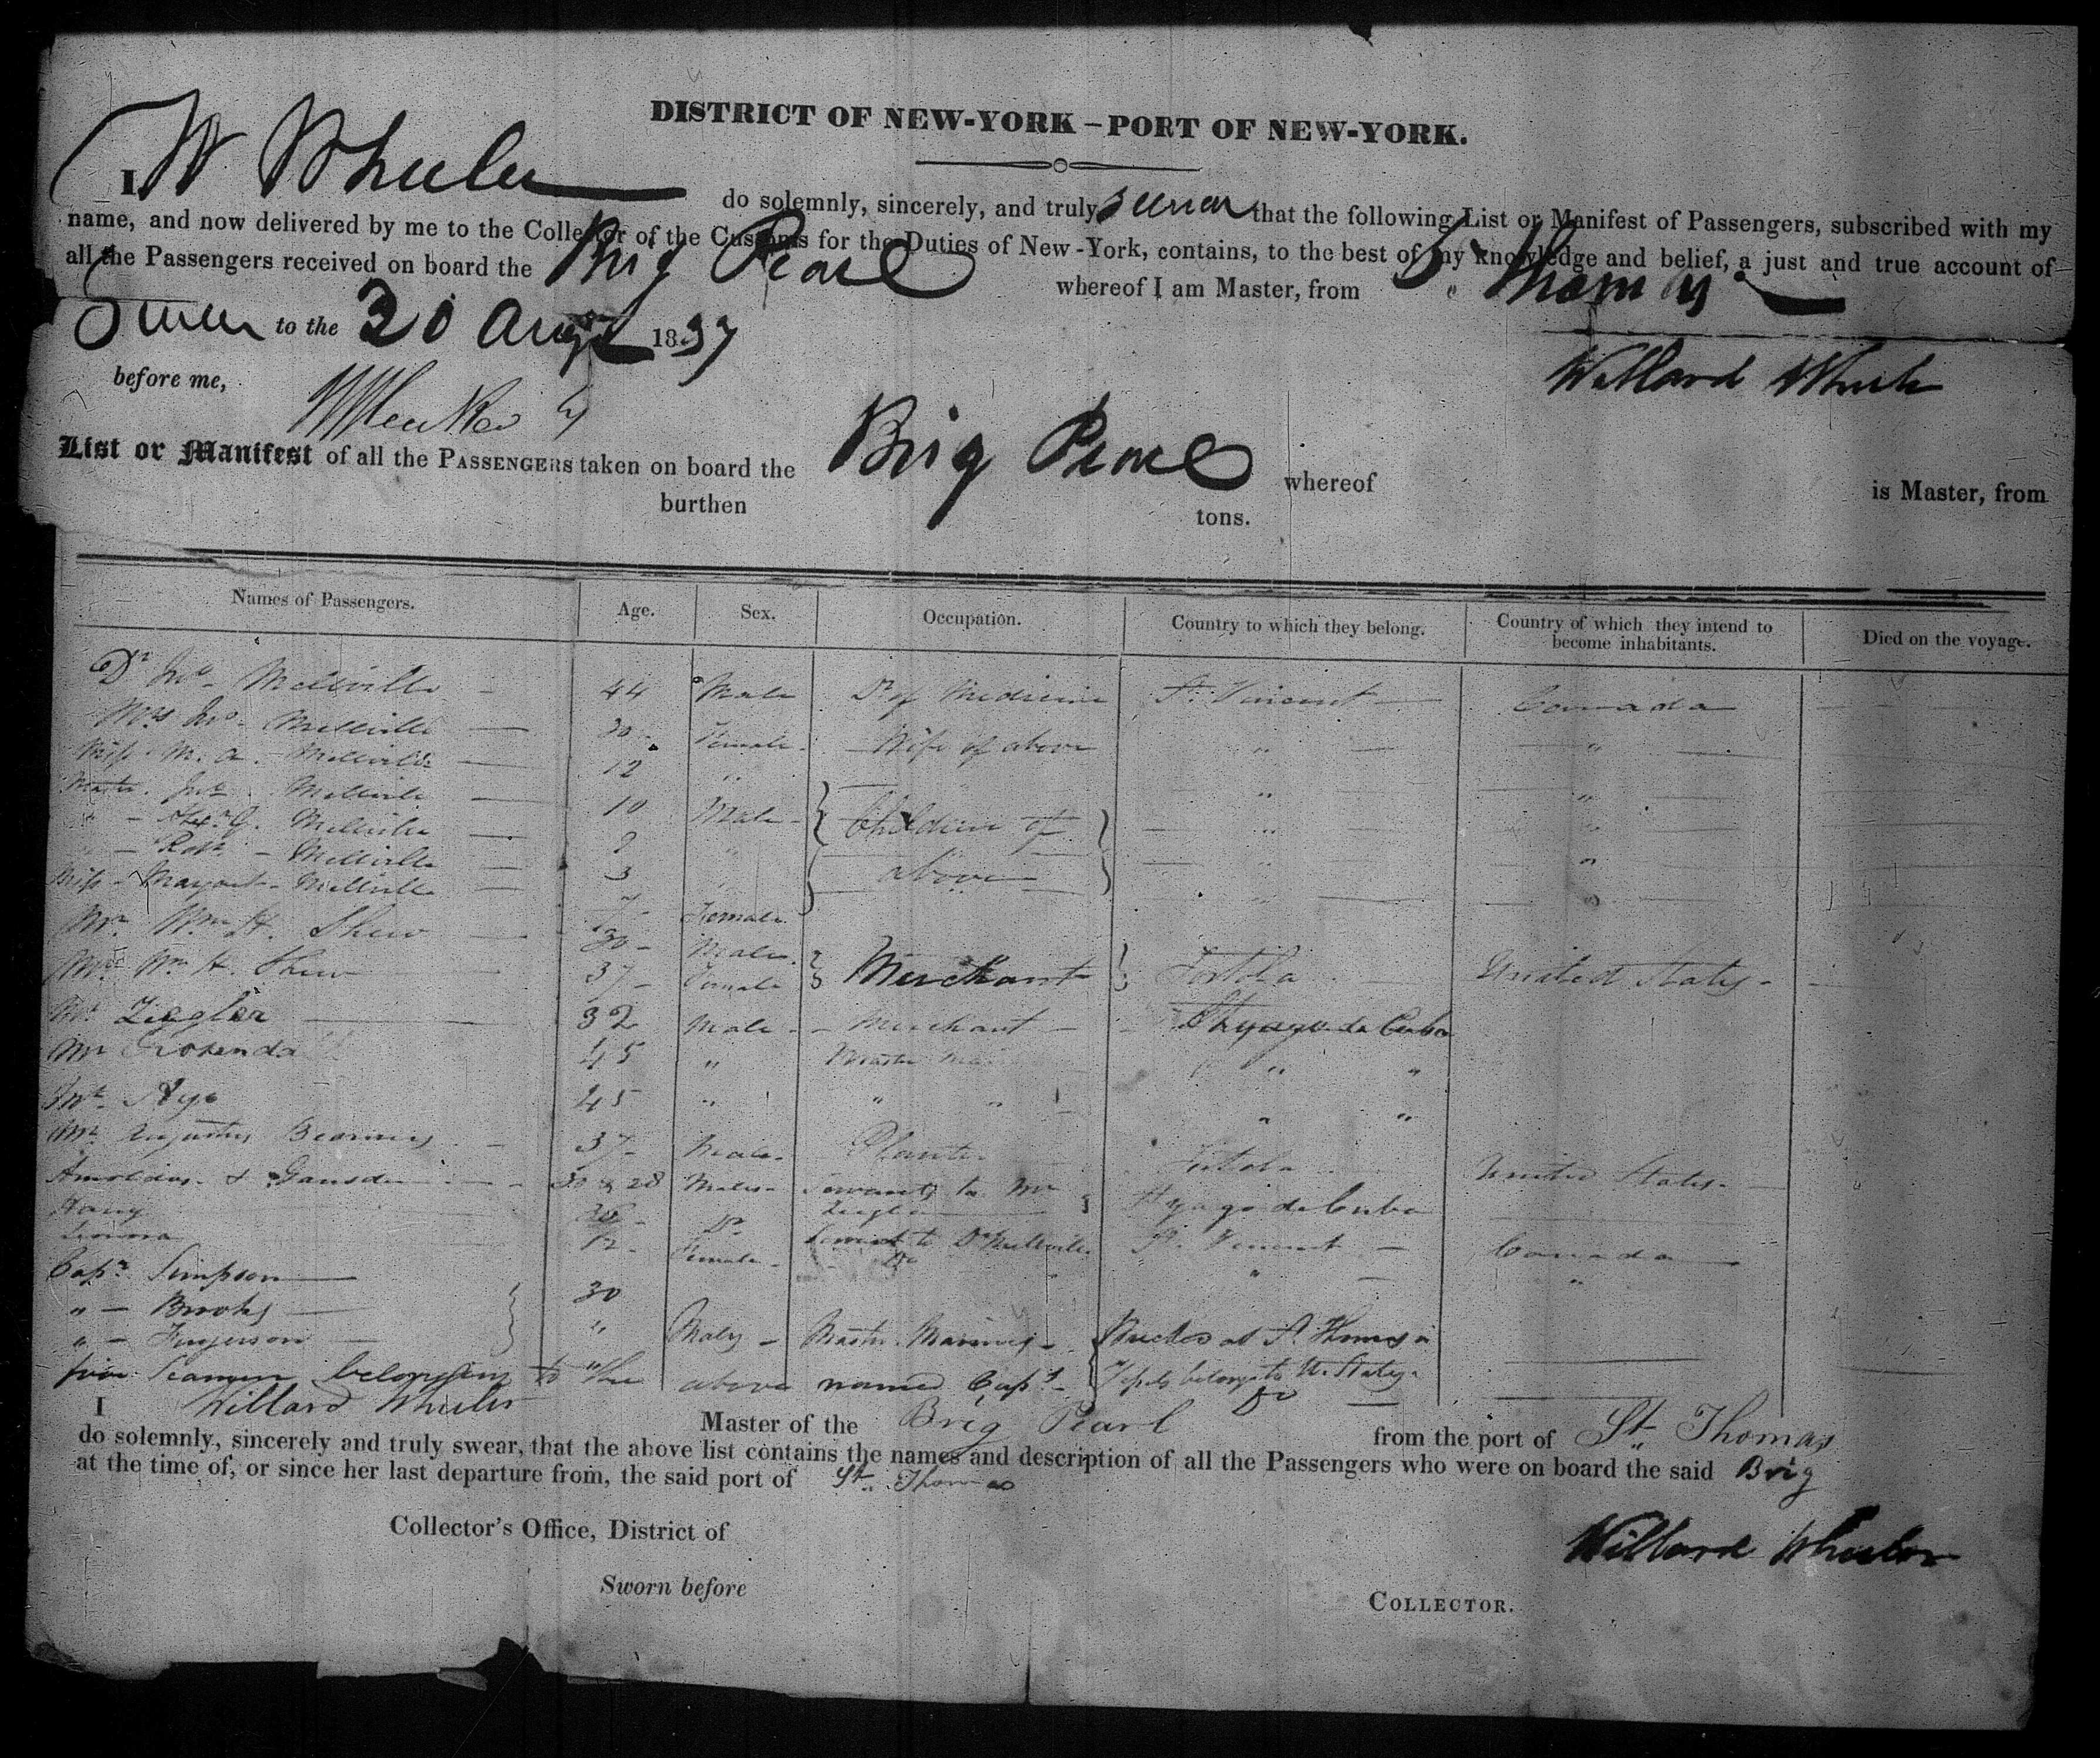 DISTRICT OF NEW-YORK – PORT OF NEW-YORK.
I W Wheeler do solemnly, sincerely, and truly swear that the following List or Manifest of Passengers, subscribed with my
name, and now delivered by me to the Collector of the Customs for the Duties of New-York, contains, to the best of my knowledge and belief, a just and true account of
all the Passengers received on board the Brig Pearl whereof I am Master, from St. Thomas
Sworn to the 30 Augt 1837
before me, Willard Wheeler
List or Manifest of all the PASSENGERS taken on board the Brig Pearl whereof is Master, from
burthen tons.
Names of Passengers. Age. Sex. Occupation. Country to which they belong. Country of which they intend to become inhabitants. Died on the voyage.
Dr Jno. Mellville - 44 Male Dr of Medicine St. Vincent Canada
Mrs Jno. Mellville 30 - Female - Wife of above " "
Miss M. A. Mellville 12 " " "
Master Jno. Mellville 10 Male - Children of " "
" - Alexr G. Mellville 9 " above " "
" - Robt - Mellville 3 " " "
Miss - Margaret - Mellville 7 - Female
Mr. Wm H. Shew 30 - Male. Merchant Tortola United States -
Mrs Wm H. Shew 37 - Female
Mr Ziegler 32 Male - - Merchant - St yago de Cuba
Mr Rosenda 45 " Master " "
Mr. Aye 45 " " " " "
Mr Augustus 37 - Male - Planter Tortola United States -
Arnoldus & 30 & 28 Males Servants to Mr Ziegler St yago de Cuba
Harry Do Servant to Dr Mellville St. Vincent - Canada
12 - Female - Do " "
Capn Simpson 30
" - Brooks " Males - Master Mariners - at St. Thomas
" - " belongs to U. States -
five Seamen belonging to the above named Capts - Do
I Willard Wheeler Master of the Brig Pearl from the port of St. Thomas
do solemnly, sincerely and truly swear, that the above list contains the names and description of all the Passengers who were on board the said Brig
at the time of, or since her last departure from, the said port of St. Thomas
Collector's Office, District of
Willard Wheeler
Sworn before
COLLECTOR.